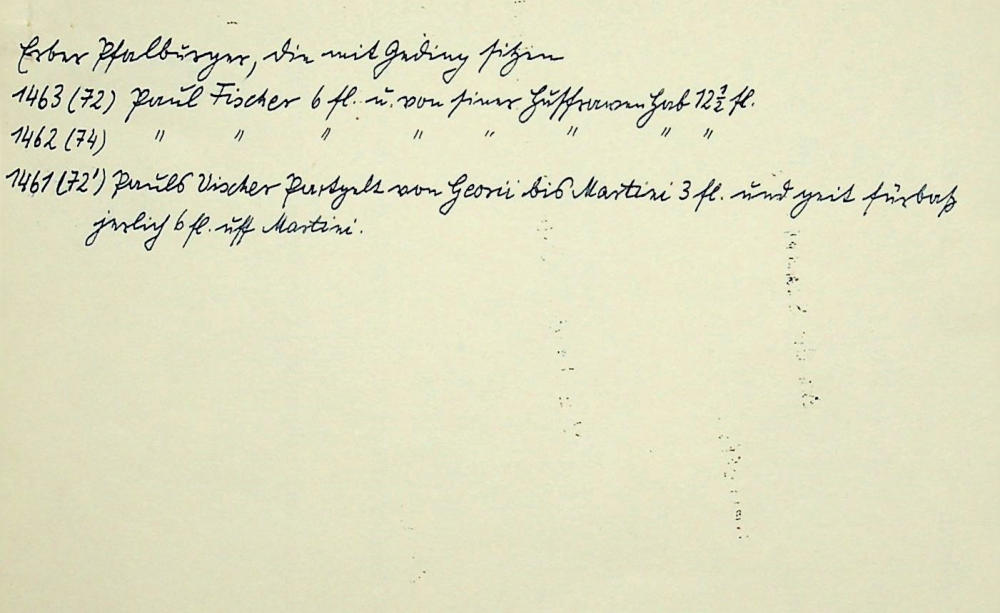 Erber Pfalburger, die mit Geding sitzen
1463 (72) Paul Fischer 6 fl. u. von siner Husfrawen Hab 12 1/2 fl.
1462 (74) " " " " " " " "
1461 (72') Pauls Vischer Partgelt von Georii bis Martini 3 fl. und geit fürbaß
jerlich 6 fl. uff Martini.